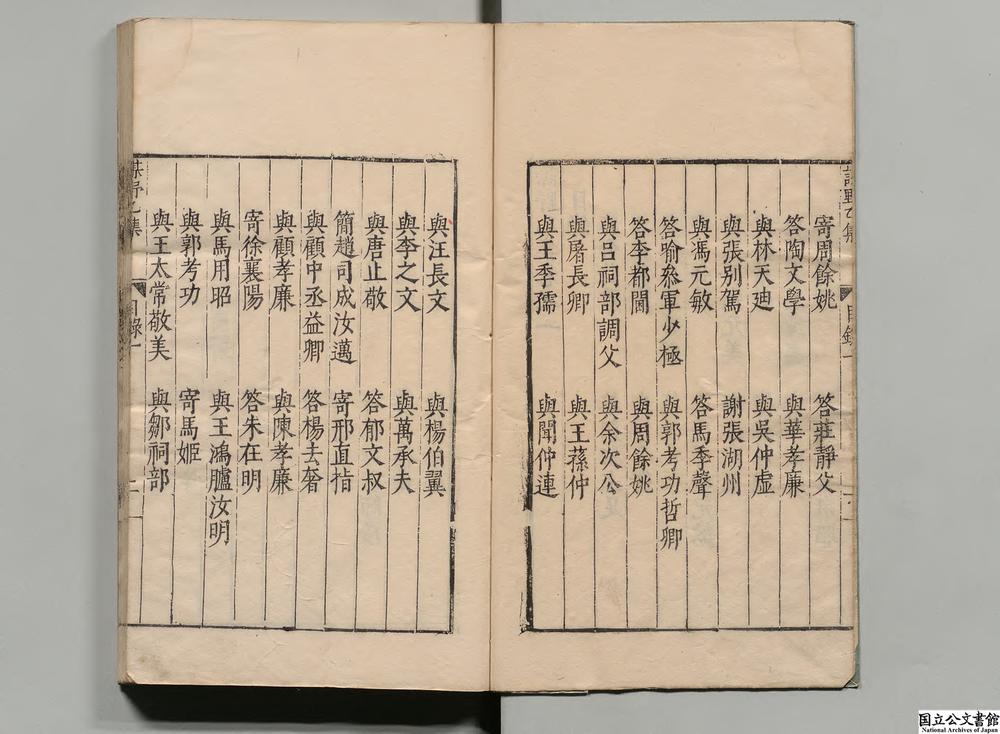 寄周餘姚　答莊靜父
答陶文學　與華孝廉
與林天廸　與吳仲虛
與張别駕　謝張湖州
與馮元敏　答馬季聲
答喻叅軍少極　與郭考功哲卿
答李都閫　與周餘姚
與呂祠部調父　與余次公
與屠長卿　與王蓀仲
與王季孺　與聞仲連
與汪長文　與楊伯翼
與李之文　與萬承夫
與唐止敬　答郁文叔
簡趙司成汝邁　寄邢直指
與顧中丞益卿　答楊去奢
與顧孝廉　與陳孝廉
寄徐襄陽　答朱在明
與馬用昭　與王鴻臚汝明
與郭考功　寄馬姬
與王太常敬美　與鄒祠部
乙集　目錄一
国立公文書館
National Archives of Japan